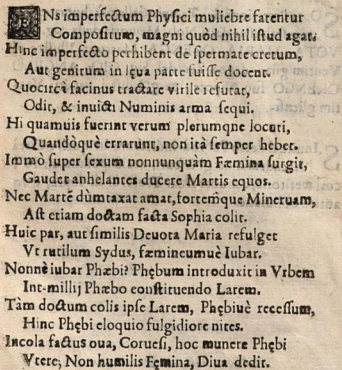 ENs imperfectum Physici muliebre fatentur
Compositum, magni quòd nihil istud agat.
Hinc imperfecto perhibent de spermate cretum,
Aut genitum in lęua parte fuisse docent.
Quocircà facinus tractare virile refutat,
Odit, & inuicti Numinis arma sequi.
Hi quamuis fuerint verum plerumqne locuti,
Quandòquè errarunt, non ità semper hebet.
Immò super sexum nonnunquàm Fæmina surgit,
Gaudet anhelantes ducere Martis equos.
Nec Martē dùmtaxat amat, fortemque Mineruam,
Ast etiam doctam facta Sophia colit.
Huic par, aut similis Deuota Maria refulget
Vt rutilum Sydus, fæmineumuè Iubar.
Nonnè iubar Phæbi? Phębum introduxit in Vrbem
Int-millij Phæbo constituendo Larem.
Tàm doctum colis ipse Larem, Phębiuè recessum,
Hinc Phębi eloquio fulgidiore nites.
Incola factus oua, Coruesi, hoc munere Phębi
Vtere; Non humilis Fęmina, Diua dedit.